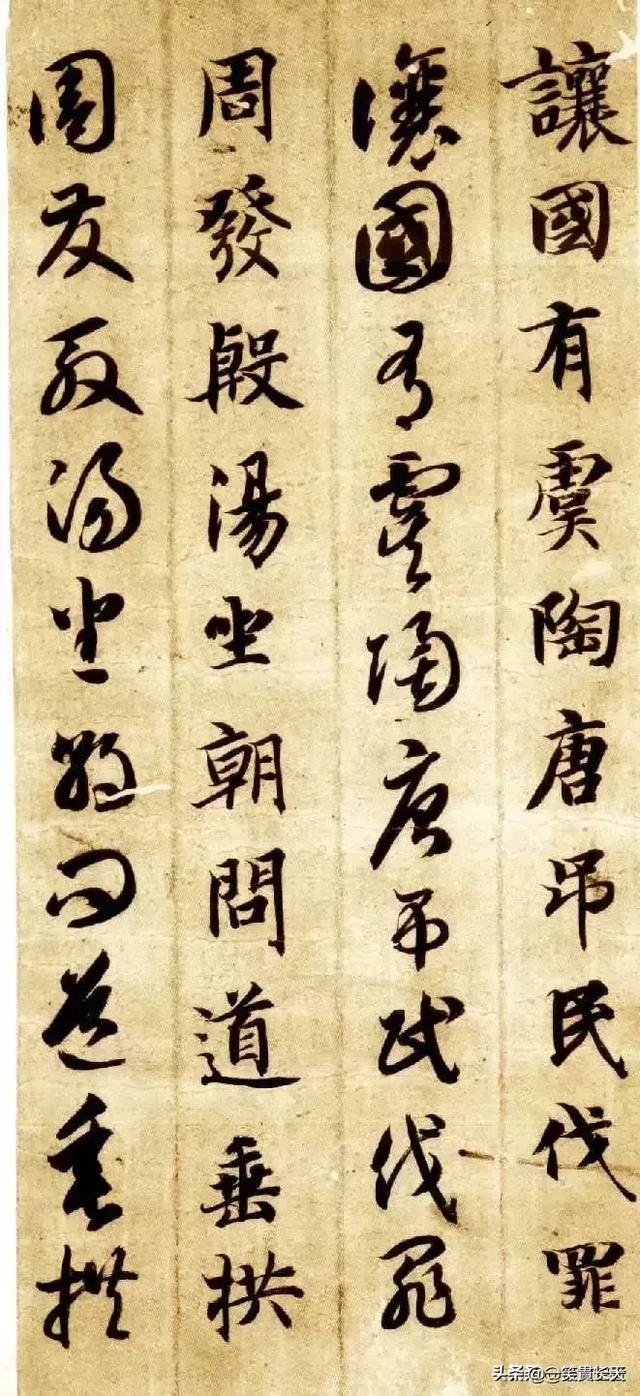 讓國有虞陶唐吊民伐罪
讓國有虞陶唐吊民伐罪
周發殷湯坐朝問道垂拱
周發殷湯坐朝問道垂拱
头条@笑貫长天